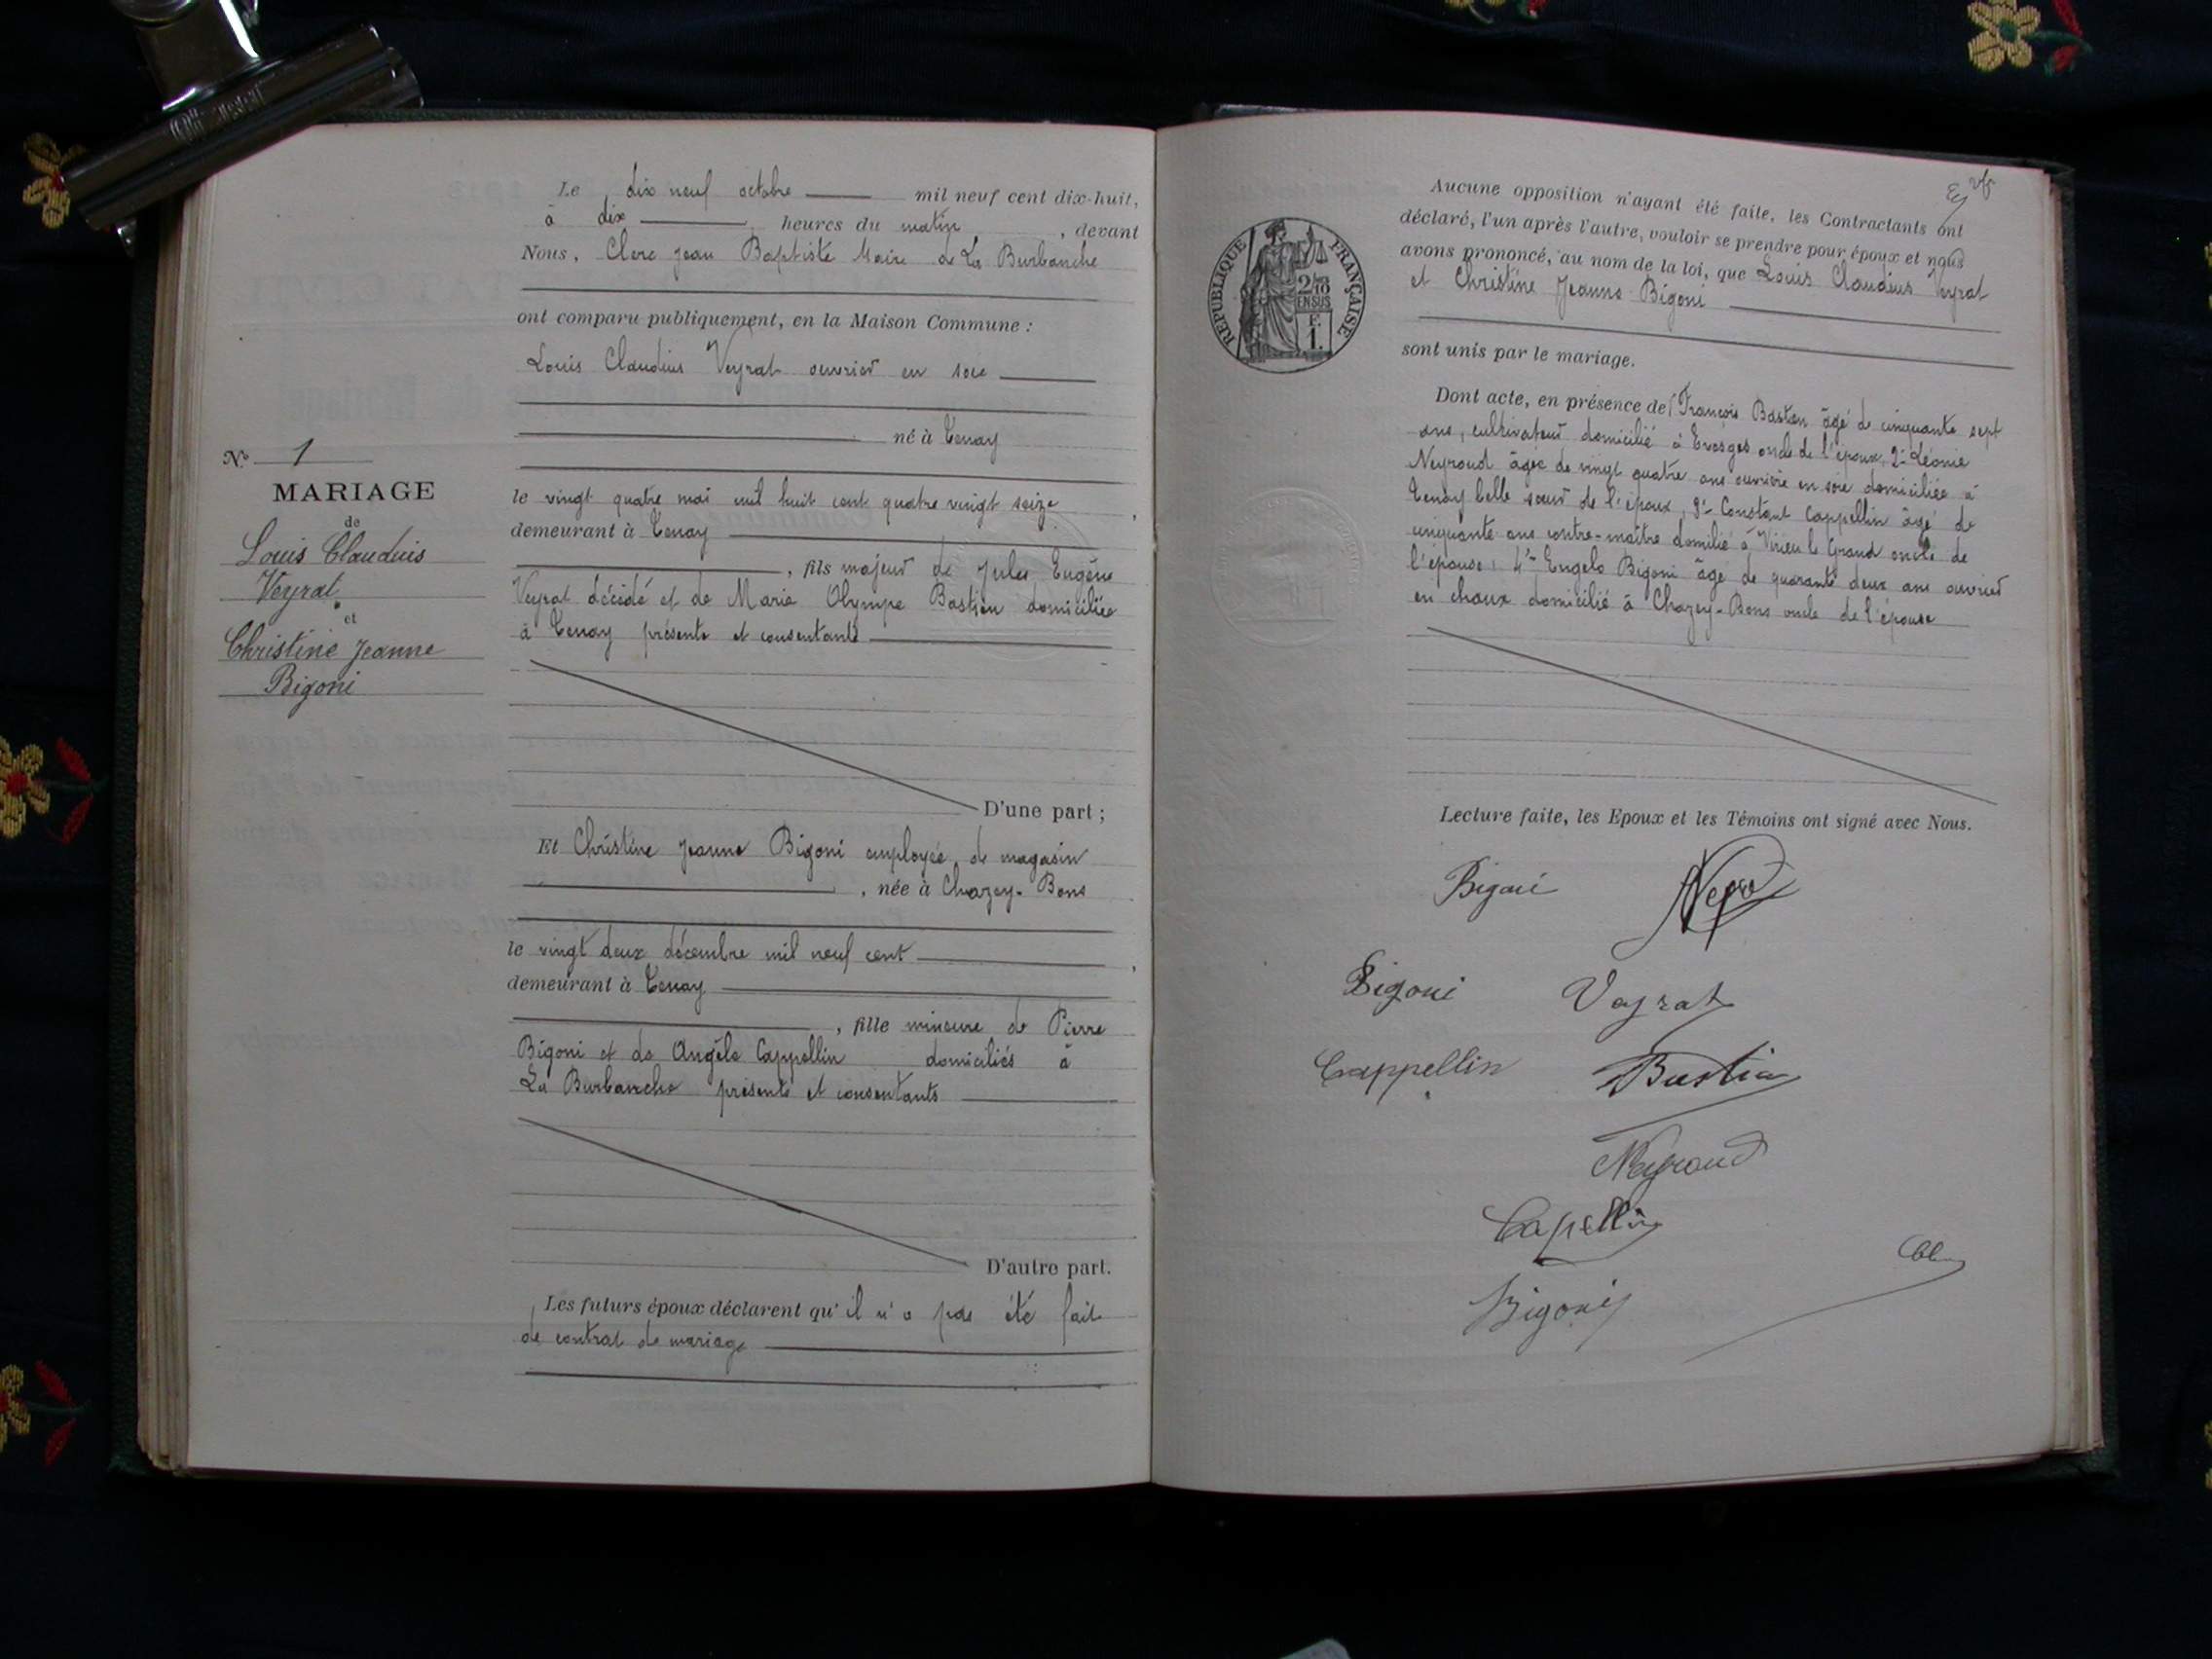 Le dix neuf octobre mil neuf cent dix-huit,
à dix heures du matin, devant
Nous, Clerc Jean Baptiste Maire de La Burbanche
ont comparu publiquement, en la Maison Commune :
Louis Claudius Veyrat ouvrier en soie
né à Tenay
No 1
MARIAGE
de
Louis Claudius
Veyrat
et
Christine Jeanne
Bigoni
le vingt quatre mai mil huit cent quatre vingt seize,
demeurant à Tenay
, fils majeur de Jules Eugène
Veyrat décédé et de Marie Olympe Bastien domiciliée
à Tenay présente et consentante
D'une part ;
Et Christine Jeanne Bigoni employée de magasin
, née à Chazey-Bons
le vingt deux décembre mil neuf cent,
demeurant à Tenay
, fille mineure de Pierre
Bigoni et de Angèle Cappellin domiciliés à
La Burbanche présents et consentants
D'autre part.
Les futurs époux déclarent qu'il n'a pas été fait
de contrat de mariage
Aucune opposition n'ayant été faite, les Contractants ont
déclaré, l'un après l'autre, vouloir se prendre pour époux et nous
avons prononcé, au nom de la loi, que Louis Claudius Veyrat
et Christine Jeanne Bigoni
sont unis par le mariage.
REPUBLIQUE FRANÇAISE
2/10
EN SUS
E.
1.
Dont acte, en présence de François Bastien âgé de cinquante sept
ans, cultivateur domicilié à Evosges oncle de l'époux, 2- Léonie
Neyroud âgée de vingt quatre ans ouvrière en soie domiciliée à
Tenay belle sœur de l'époux, 3- Constant Cappellin âgé de
cinquante ans contre-maître domilié à Virieu le Grand oncle de
l'épouse, 4- Engelo Bigoni âgé de quarante deux ans ouvrier
en chaux domicilié à Chazey-Bons oncle de l'épouse
Lecture faite, les Epoux et les Témoins ont signé avec Nous.
Bigoni
Bigoni Veyrat
Cappellin Bastien
Neyroud
Capellin
Bigoni